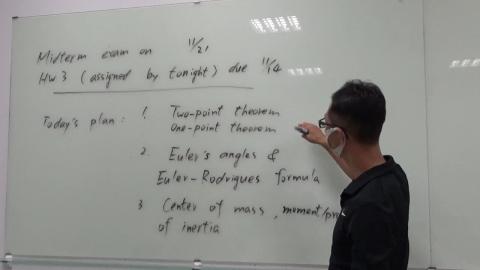 Midterm exam on 11/21
HW 3 (assigned by tonight) due 11/14
Today's plan : 1. Two-point theorem
One-point theorem
2. Euler's angles &
Euler-Rodrigues formula
3 Center of mass, moment/pr
of inertia